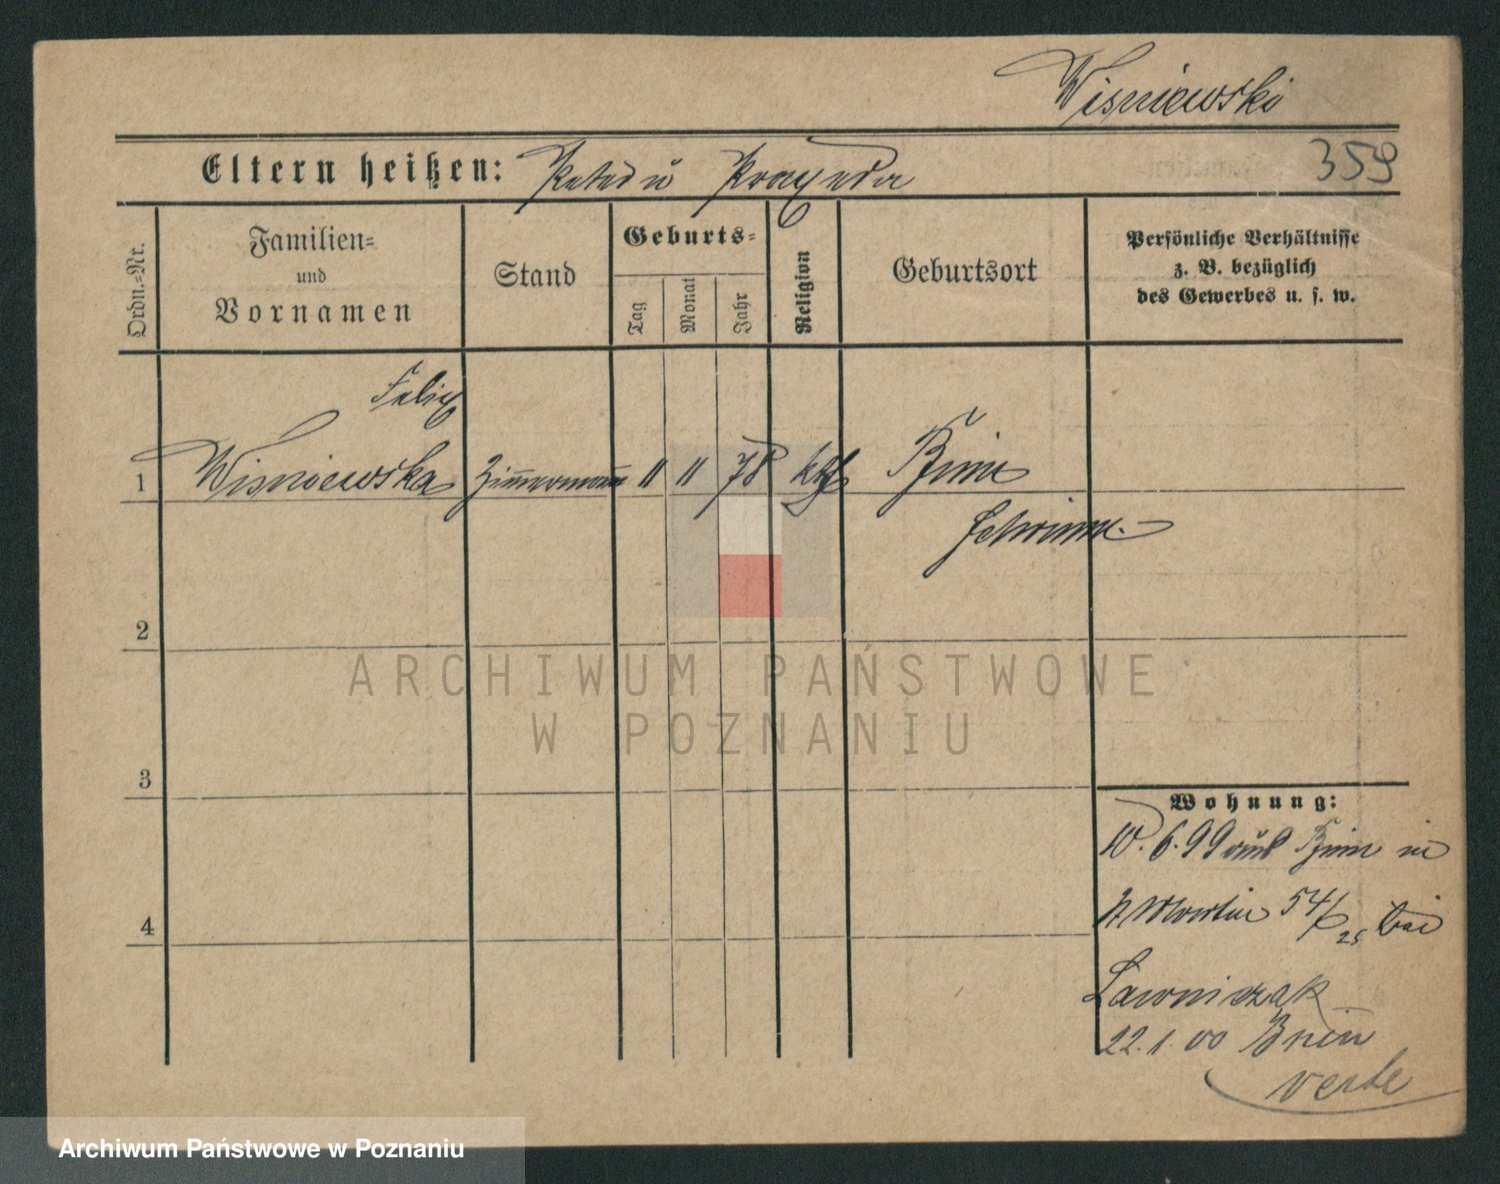 Wisniewski
Eltern heißen:
359
Ordn.=Nr.
Familien=
und
Vornamen
Stand
Geburts=
Tag
Monat
Jahr
Religion
Geburtsort
Persönliche Verhältnisse
z. B. bezüglich
des Gewerbes u. s. w.
Felix
1 Wisniewska Zimmermann 11 11 78 kth Bnin
Schrimm
2
3
4
Wohnung:
10. 6. 99 aus Bnin in
St Martin 54/ 25 bei
Lawniczak
22. 1. 00 Bnin
verte
ARCHIWUM PAŃSTWOWE
W POZNANIU
Archiwum Państwowe w Poznaniu